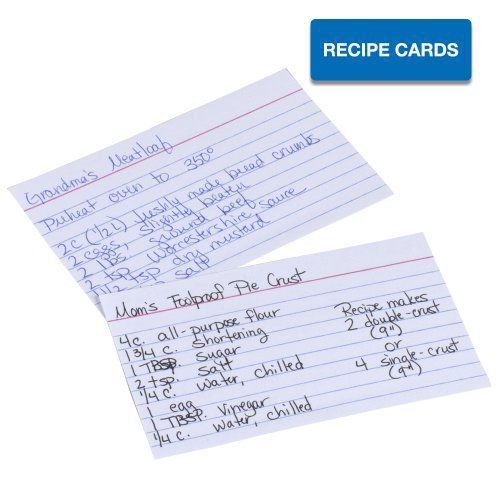 RECIPE CARDS
Grandma's Meatloaf
Preheat oven to 350°
2 c (1/2 L) freshly made bread crumbs
2 eggs, slightly beaten
2 lbs. ground beef
2 tsp Worcestershire sauce
tsp dry mustard
salt
Mom's Foolproof Pie Crust
4 c. all-purpose flour
1 3/4 c. Shortening
1 TBSP. Sugar
2 tsp. Salt
1/4 c. Water, chilled
1 egg
1 TBSP. Vinegar
1/4 c. Water, chilled
Recipe makes
2 double-crust
(9")
or
4 single-crust
(9")